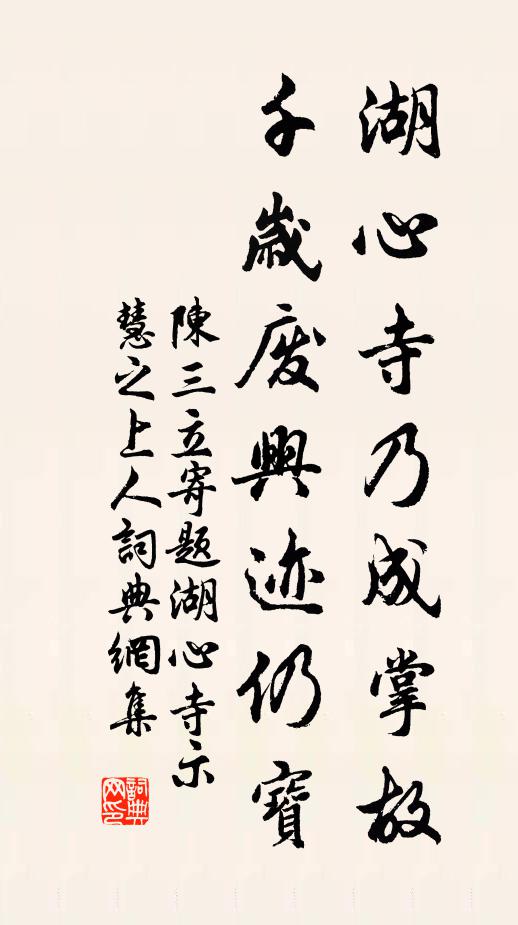 湖心寺乃成掌故
千歲废興迹仍寶
陳三立寄题湖心寺示
慧之上人詞典網集
詞典
网印